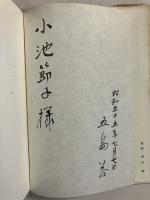 小池節子様
昭和五十五年七月七日
五島茂